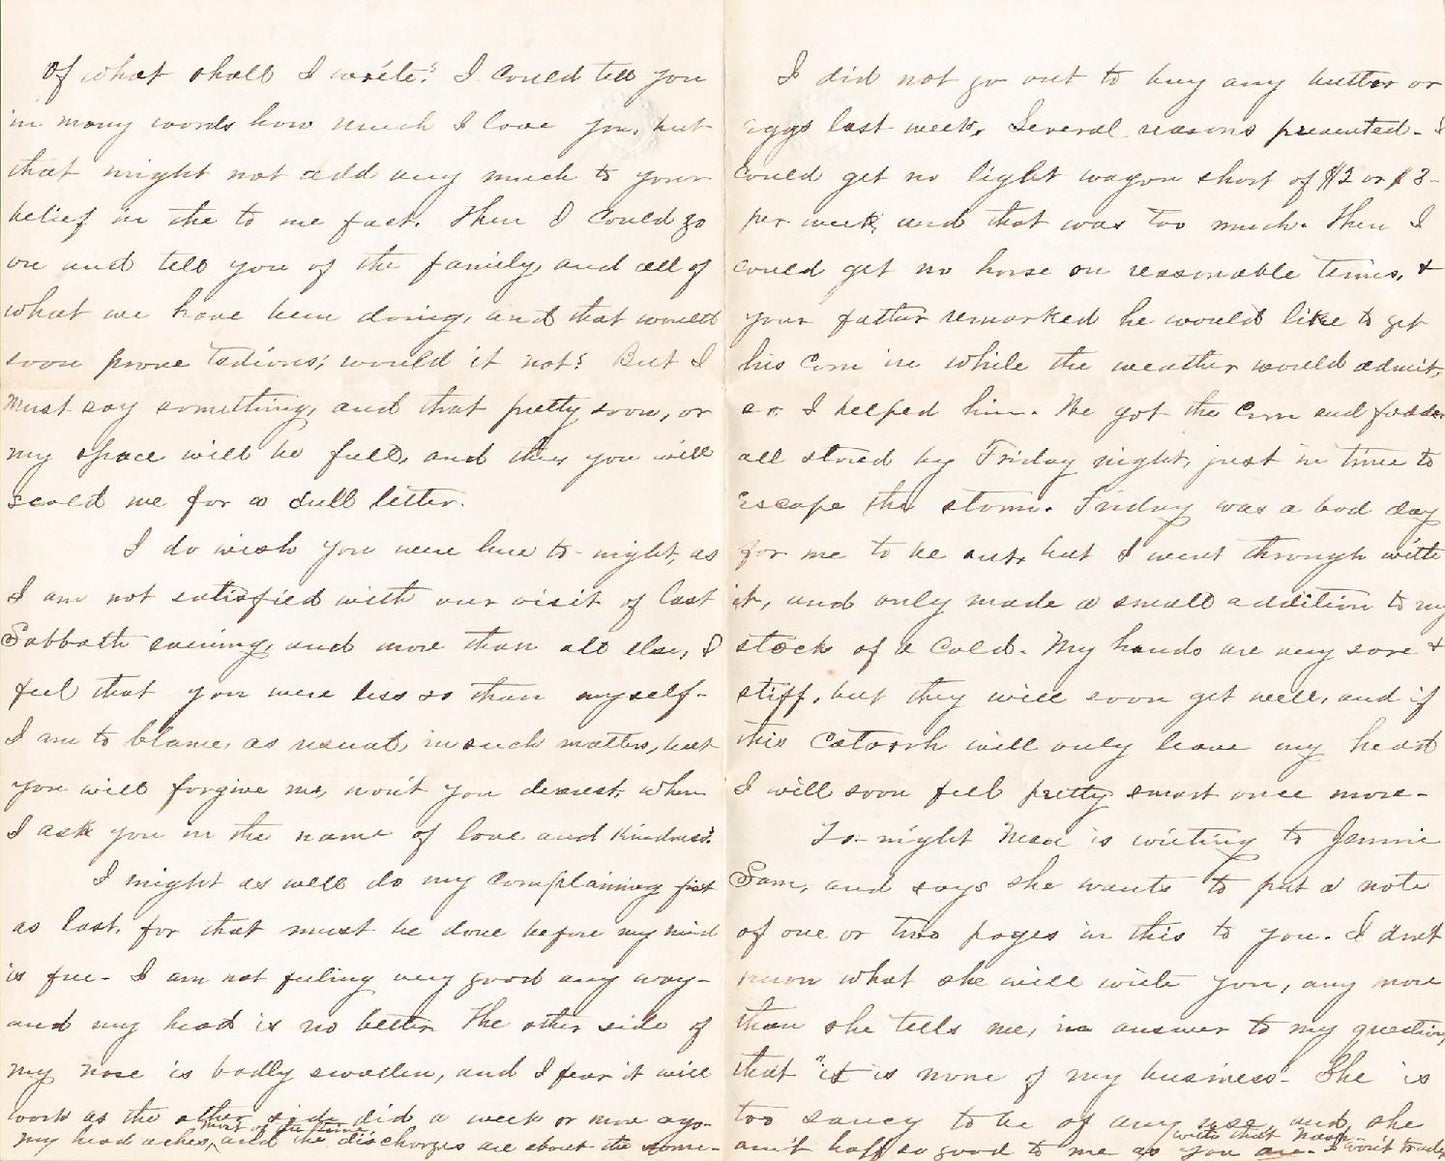 Of what shall I write? I could tell you
in many words how much I love you, but
that might not add very much to your
belief in the to me fact. Then I could go
on and tell you of the family, and all of
what we have been doing, and that would
soon prove tedious; would it not? But I
must say something, and that pretty soon, or
my space will be full, and then you will
scold me for a dull letter.
I do wish you were here to-night, as
I am not satisfied with our visit of last
Sabbath evening, and more than all else, I
feel that you were less so than myself-
I am to blame, as usual, in such matters, but
you will forgive me, won't you dearest, when
I ask you in the name of love and kindness?
I might as well do my complaining first
as last, for that must be done before my mind
is free- I am not feeling very good any way-
and my head is no better. The other side of
my nose is badly swollen, and I fear it will
work as the other side did a week or more ago-
my head aches, most of the time, and the discharges are about the same-
I did not go out to buy any butter or
eggs last week. Several reasons prevented- I
could get no light wagon short of $2 or $3-
per week, and that was too much. Then I
could get no horse on reasonable terms, &
your father remarked he would like to get
his corn in while the weather would admit,
so I helped him. We got the corn and fodder
all stored by Friday night, just in time to
escape the storm. Friday was a bad day
for me to be out, but I went through with
it, and only made a small addition to my
stock of a cold. My hands are very sore &
stiff, but they will soon get well, and if
this Catarrh will only leave my head
I will soon feel pretty smart once more-
To-night is writing to Jennie
Sam, and says she wants to put a note
of one or two pages in this to you. I don't
know what she will write you, any more
than she tells me, in answer to my question,
that "it is none of my business- She is
too saucy to be of any use, and she
ain't half so good to me as you are- I won't trade
with that